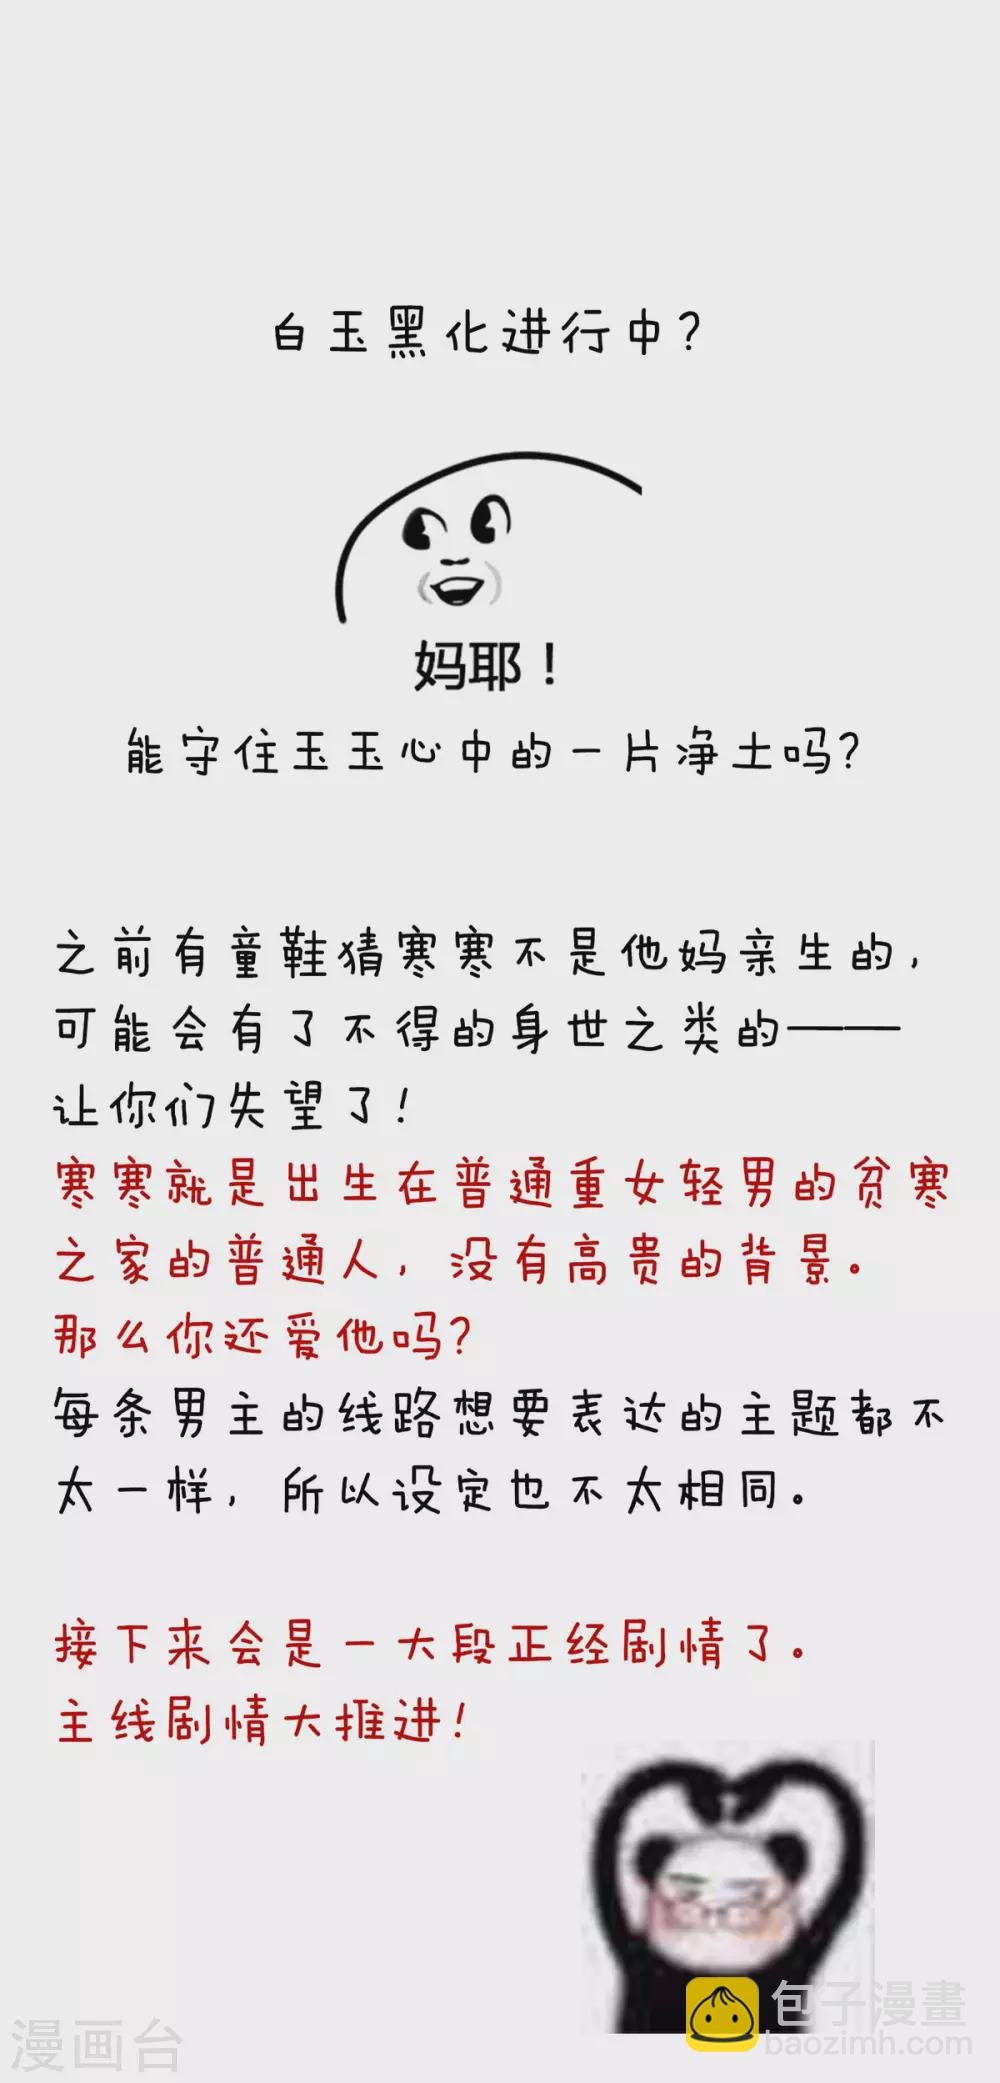 白玉黑化进行中?
妈耶！
能守住玉玉心中的一片净土吗?
之前有童鞋猜寒寒不是他妈亲生的，
可能会有了不得的身世之类的——
让你们失望了!
寒寒就是出生在普通重女轻男的贫寒
之家的普通人，没有高贵的背景。
那么你还爱他吗?
每条男主的线路想要表达的主题都不
太一样，所以设定也不太相同。
接下来会是一大段正经剧情了。
主线剧情大推进!
包子漫畫
baozimh.com
漫画台